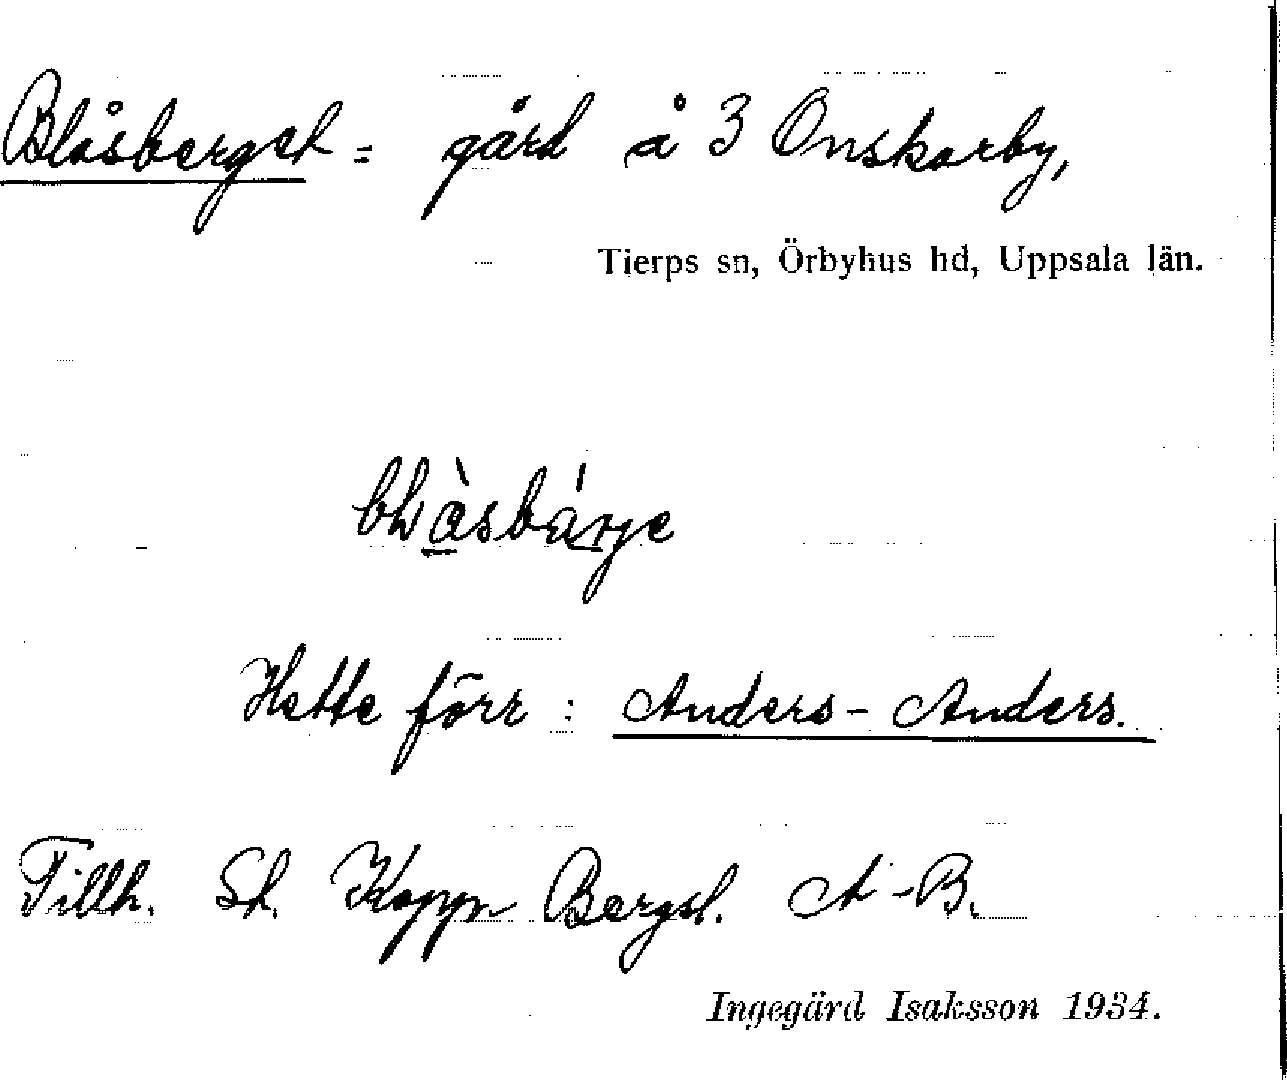 Blåsberget = gård å 3 Onskarby,
Tierps sn, Örbyhus hd, Uppsala län.
Hette förr : Anders-Anders.
Tillh. St. Kopp Bergsl. A-B.
Ingegärd Isaksson 1934.